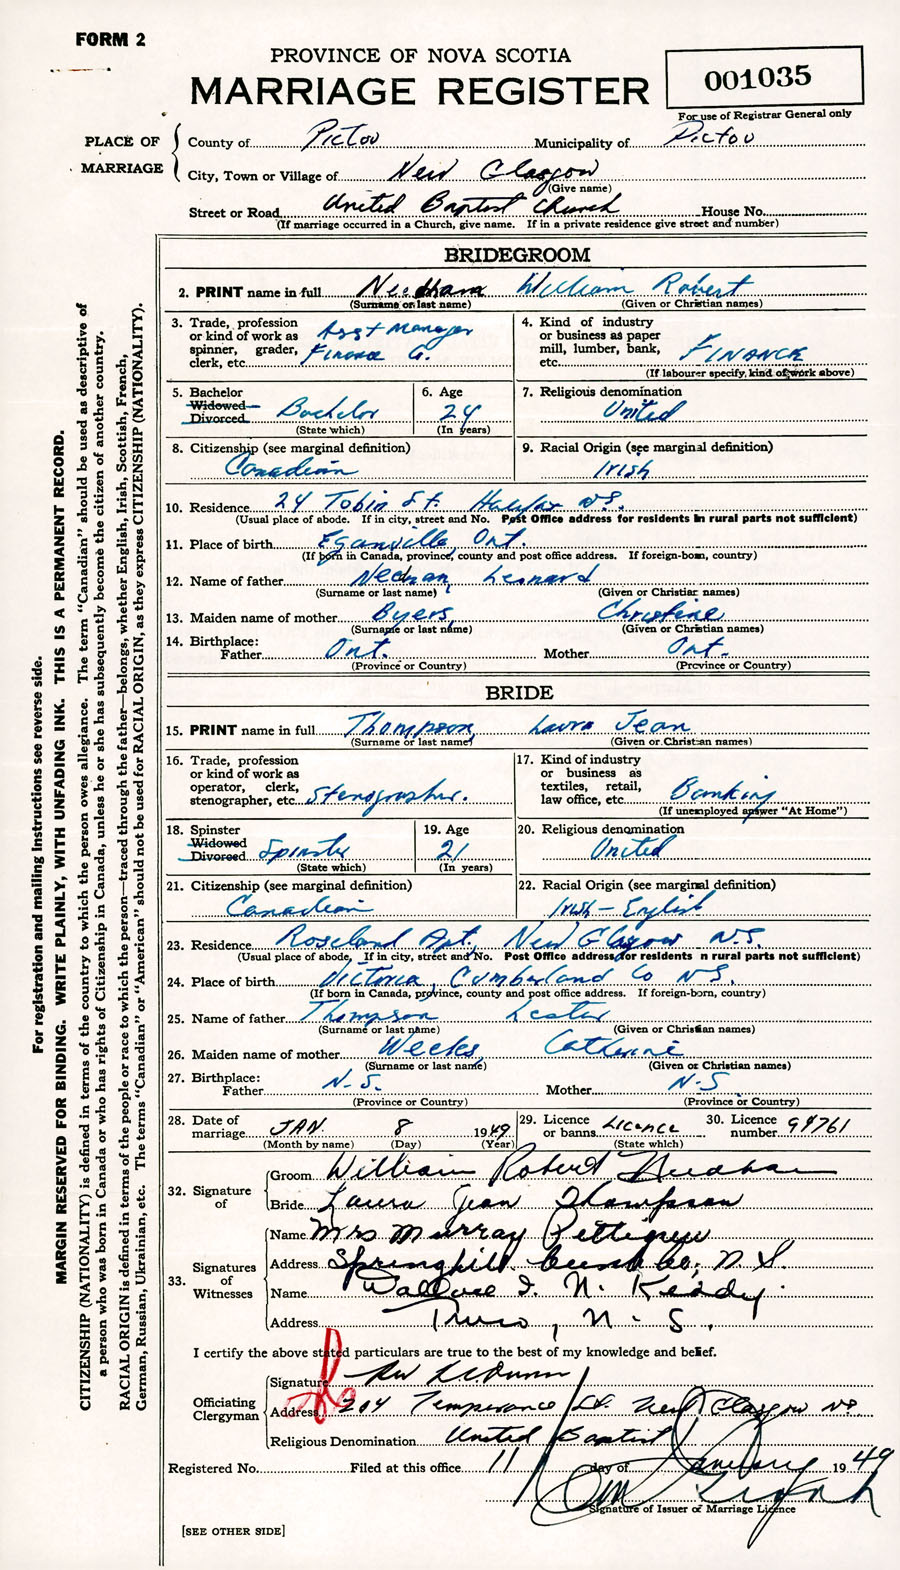 FORM 2
PROVINCE OF NOVA SCOTIA
MARRIAGE REGISTER
001035
For use of Registrar General only
PLACE OF MARRIAGE
County of Pictou Municipality of Pictou
City, Town or Village of New Glasgow
(Give name)
Street or Road United Baptist Church House No.
(If marriage occurred in a Church, give name. If in a private residence give street and number)
BRIDEGROOM
2. PRINT name in full Needham William Robert
(Surname or last name) (Given or Christian names)
3. Trade, profession or kind of work as spinner, grader, clerk, etc. Asst Manager Finance Co.
4. Kind of industry or business as paper mill, lumber, bank, etc. FINANCE
(If labourer specify, kind of work above)
5. Bachelor Widowed Divorced Bachelor
(State which)
6. Age 24
(In years)
7. Religious denomination United
8. Citizenship (see marginal definition) Canadian
9. Racial Origin (see marginal definition) Irish
10. Residence 24 Tobin St. Halifax N.S.
(Usual place of abode. If in city, street and No. Post Office address for residents in rural parts not sufficient)
11. Place of birth Eganville Ont.
(If born in Canada, province, county and post office address. If foreign-born, country)
12. Name of father Leonard
(Surname or last name) (Given or Christian names)
13. Maiden name of mother Byers, Christine
(Surname or last name) (Given or Christian names)
14. Birthplace: Father Ont. Mother Ont.
(Province or Country) (Province or Country)
BRIDE
15. PRINT name in full Thompson, Laura Jean
(Surname or last name) (Given or Christian names)
16. Trade, profession or kind of work as operator, clerk, stenographer, etc. Stenographer.
17. Kind of industry or business as textiles, retail, law office, etc. Banking
(If unemployed answer "At Home")
18. Spinster Widowed Divorced Spinster
(State which)
19. Age 21
(In years)
20. Religious denomination United
21. Citizenship (see marginal definition) Canadian
22. Racial Origin (see marginal definition) Irish - English
23. Residence Roseland Apt., New Glasgow N.S.
(Usual place of abode, If in city, street and No. Post Office address for residents n rural parts not sufficient)
24. Place of birth Victoria, Cumberland Co N.S.
(If born in Canada, province, county and post office address. If foreign-born, country)
25. Name of father Thompson Lester
(Surname or last name) (Given or Christian names)
26. Maiden name of mother Weeks, Catherine
(Surname or last name) (Given or Christian names)
27. Birthplace: Father N.S. Mother N.S
(Province or Country) (Province or Country)
28. Date of marriage JAN. 8 1949
(Month by name) (Day) (Year)
29. Licence or banns Licence
(State which)
30. Licence number 94761
32. Signature of
Groom William Robert Needham
Bride Laura Jean Thompson
33. Signatures of Witnesses
Name Mrs Murray Pettigrew
Address Springhill Cumb Co, N S
Name Wallace I. N. Keddy.
Address Truro, N. S.
I certify the above stated particulars are true to the best of my knowledge and belief.
Officiating Clergyman
Signature
Address 204 Temperance St. New Glasgow NS.
Religious Denomination United Baptist
Registered No. Filed at this office 11 day of January 1949
Signature of Issuer of Marriage Licence
[SEE OTHER SIDE]
For registration and mailing instructions see reverse side.
MARGIN RESERVED FOR BINDING. WRITE PLAINLY, WITH UNFADING INK. THIS IS A PERMANENT RECORD.
CITIZENSHIP (NATIONALITY) is defined in terms of the country to which the person owes allegiance. The term "Canadian" should be used as descriptive of
a person who was born in Canada or who has rights of Citizenship in Canada, unless he or she has subsequently become the citizen of another country.
RACIAL ORIGIN is defined in terms of the people or race to which the person—traced through the father—belongs, whether English, Irish, Scottish, French,
German, Russian, Ukrainian, etc. The terms "Canadian" or "American" should not be used for RACIAL ORIGIN, as they express CITIZENSHIP (NATIONALITY).